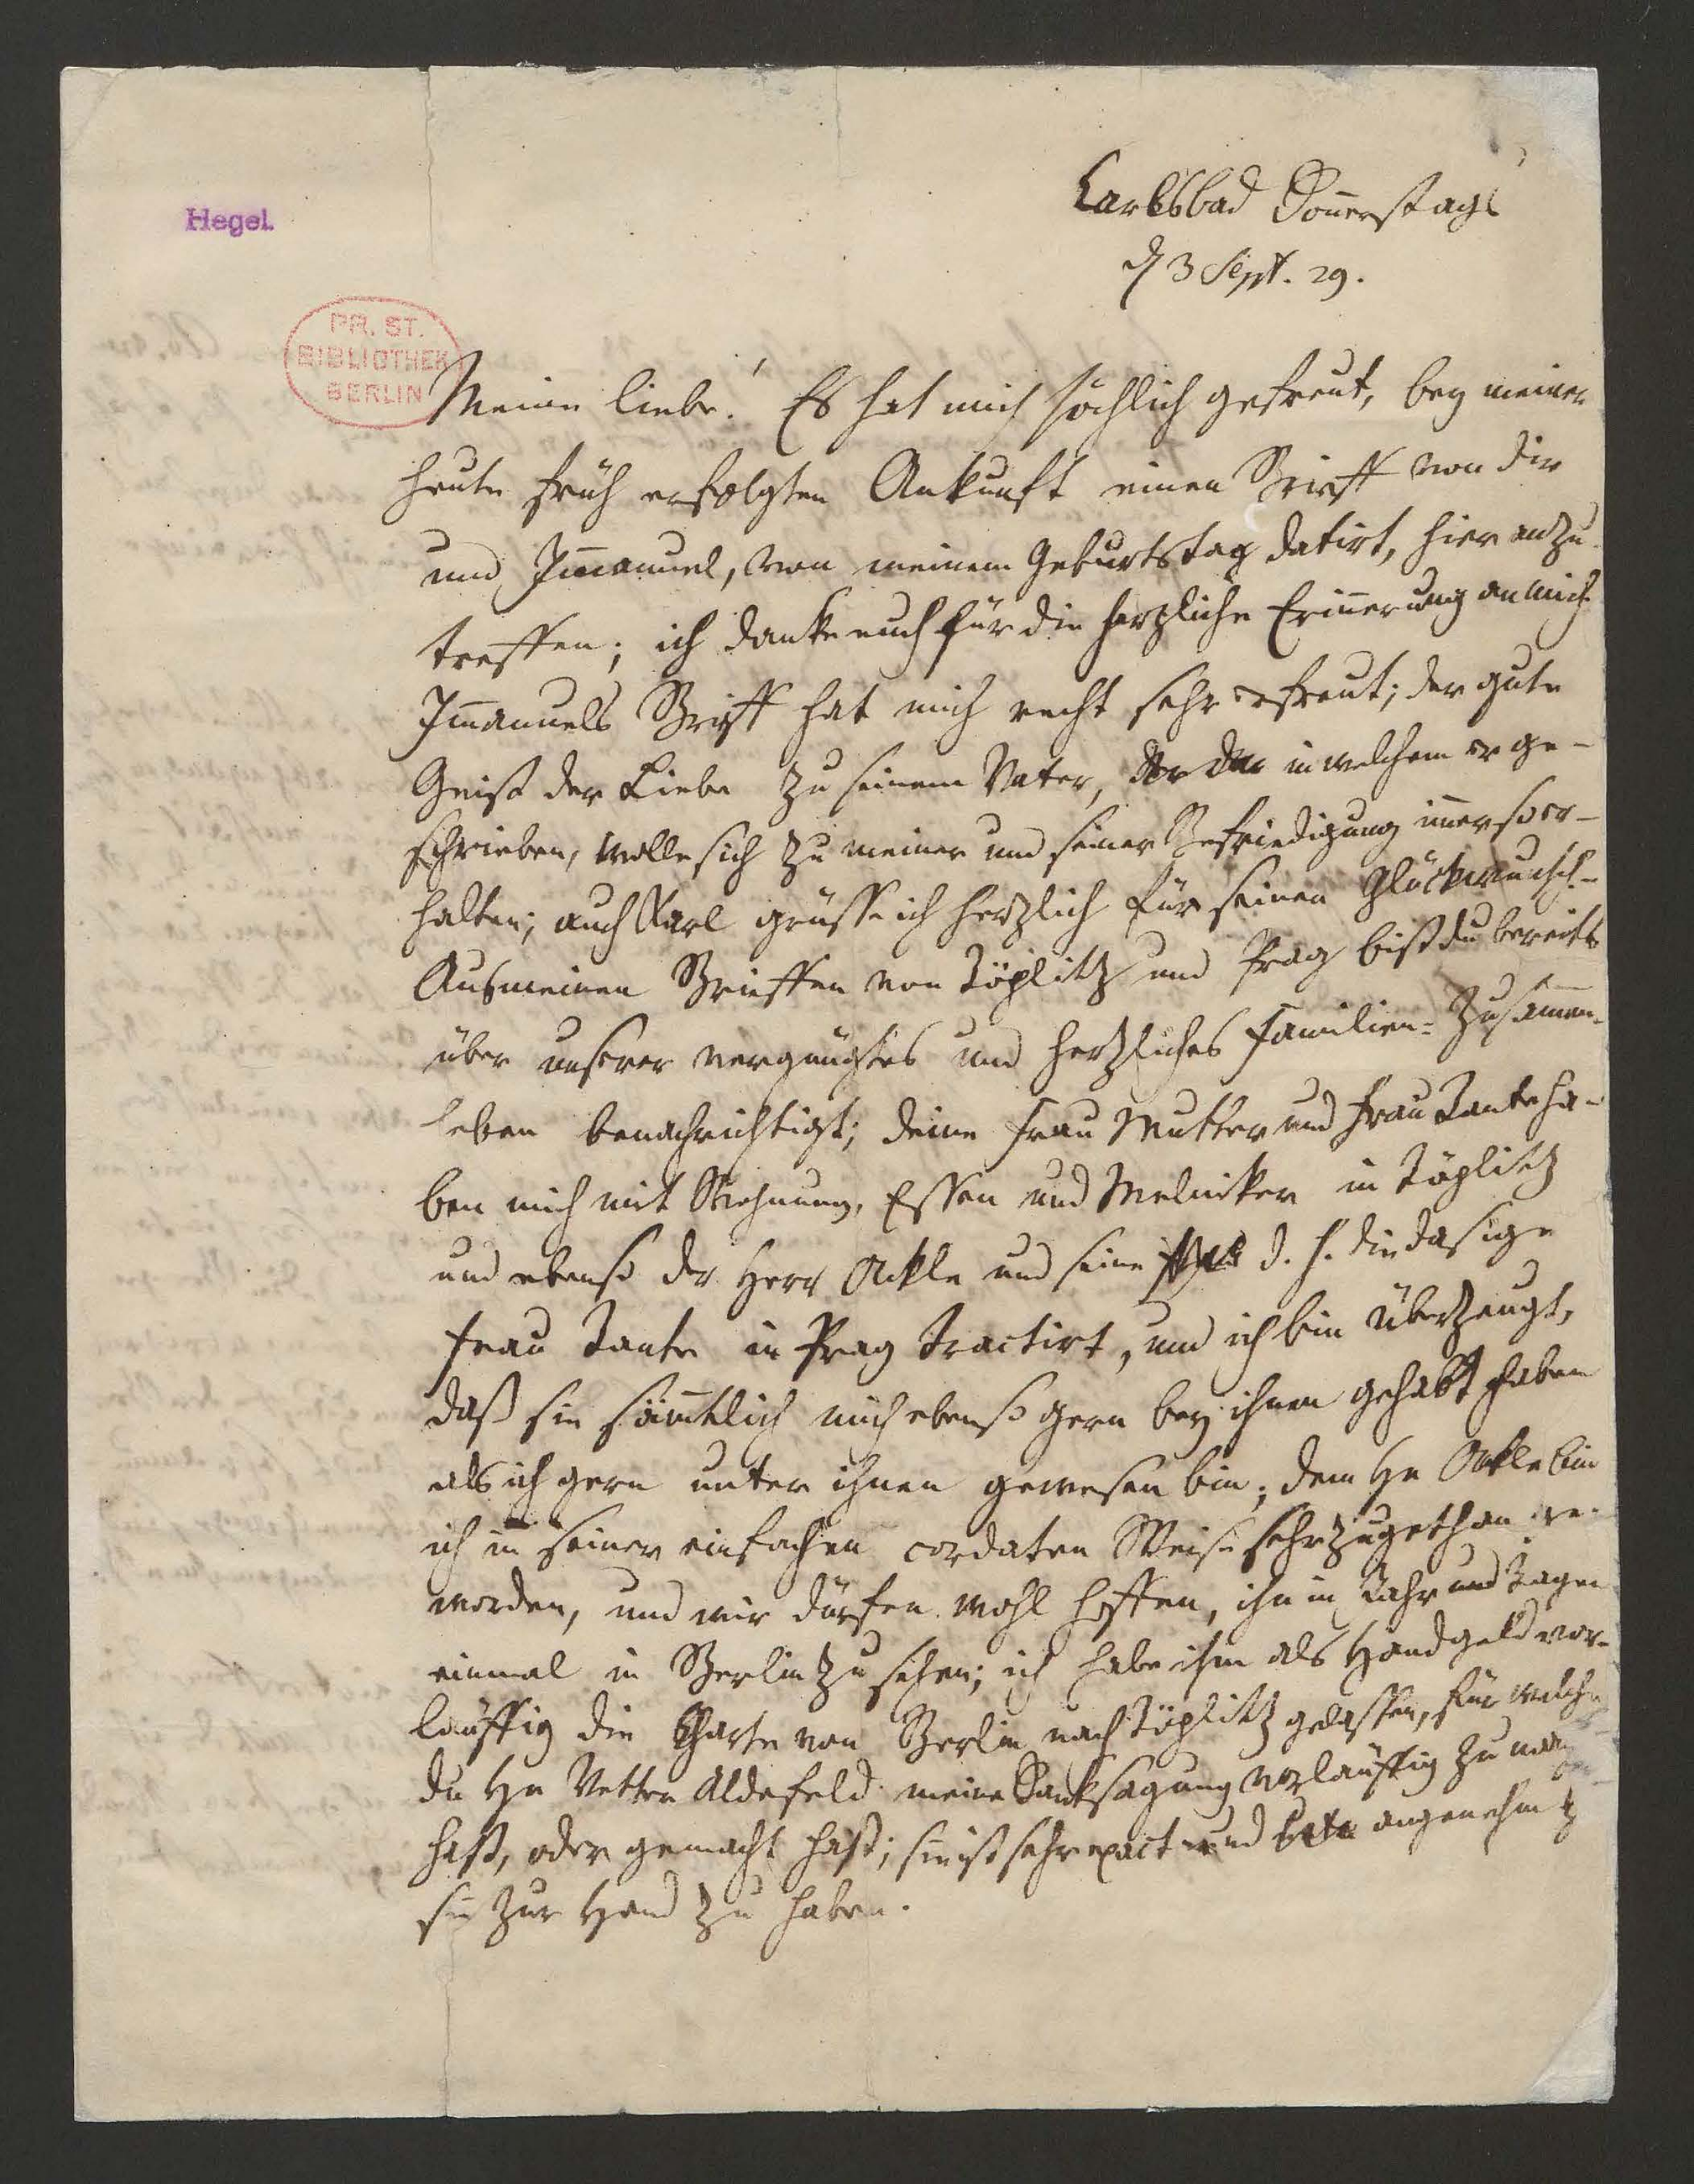 Carlsbad Doñerstags
d 3 Sept. 29.
Hegel.
PR. ST.
BIBLIOTHEK
BERLIN
Meine Liebe! Es hat mich höchlich gefreut, bey meiner
heute früh erfolgten Ankunft einen Brieff von dir
und Im̄anuel, von meinem Geburtstag datirt, hier anzu-
treffen; ich danke euch für die herzliche Erin̄erung an mich
Im̄anuels Brieff hat mich recht sehr erfreut; der gute
Geist der Liebe zu seinem Vater, in welchem er ge-
schrieben, wolle sich zu meiner und seiner Befriedigung im̄er so er-
halten; auch Karl grüsse ich herzlich für seinen Glückwunsch-
Aus meinen Brieffen von Töplitz und Prag bist du bereits
über unserer vergnügtes und herzliches Familien-Zusam̄en-
leben benachrichtigt; deine Frau Mutter und Frau Tante ha-
ben mich mit Wohnung, Essen und Melniker in Töplitz
und ebenso der Herr Onkle und seine d. h. die dasige
Frau Tante in Prag tractirt, und ich bin überzeugt,
daß sie säm̄tlich mich ebenso gern bey ihnen gehabt haben
als ich gern unter ihnen gewesen bin; dem Hn Onkle bin
ich in seiner einfachen cordaten Weise sehr zugethan ge-
worden, und wir dürfen wohl hoffen, ihn in Jahr und Tagen
einmal in Berlin zu sehen; ich habe ihm als Handgeld vor-
läuffig die Charte von Berlin nach Töplitz gelassen, für welche
du Hn Vetter Aldefeld meine Danksagung vorläuffig zu machen
hast, oder gemacht hast; sie ist sehr exact und angenehm
sie zur Hand zu haben.